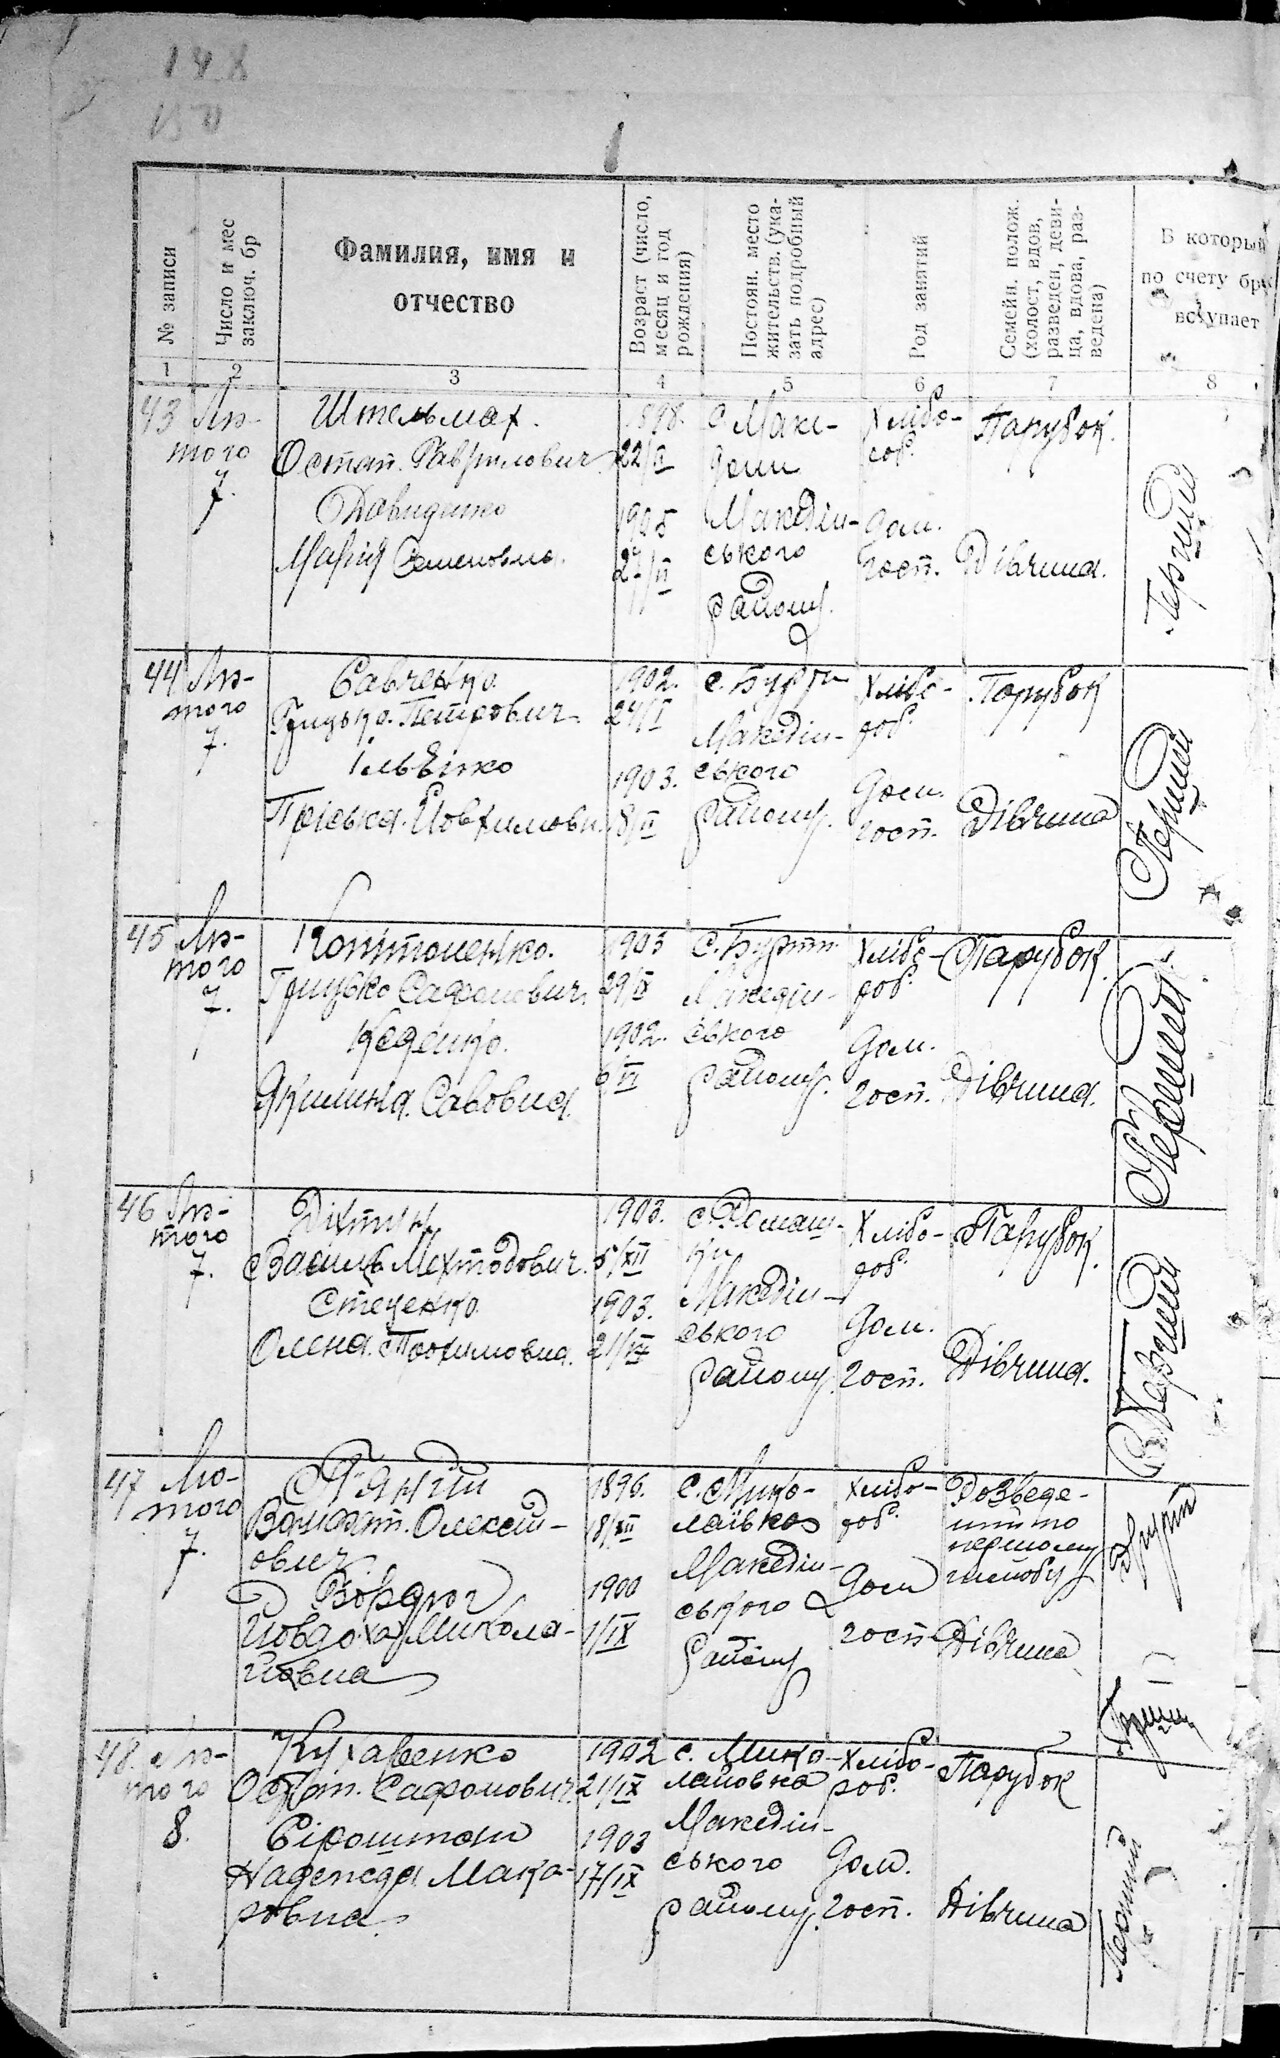 148
150
№ записи
Число и мес
заключ. бр
Фамилия, имя и
отчество
Возраст (число,
месяц и год
рождения)
Постоян. место
жительств. (ука-
зать подробный
адрес)
Род занятий
Семейн. полож.
(холост, вдов,
разведен, деви-
ца, вдова, раз-
ведена)
В который
по счету бра
вступает
1 2 3 4 5 6 7 8
43 Лю-
того
7.
Штельмах.
Остап. Гаврилович
Давиденко
Мария Семеновна.
1898.
22/II
1905
27/II
с. Маке-
дони
Македін-
ського
району.
Хлібо-
роб.
Дом.
госп.
Парубок.
Дівчина.
Перший
44 Лю-
того
7.
Савченко.
Грицько. Петрович.
Ільєнко
Пріська. Йовхимовн.
1902.
24/I
1903.
8/II
с. Бурти
Македін-
ського
району.
Хлібо-
роб.
Дом.
госп.
Парубок
Дівчина
Перший
45 Лю-
того
7.
Коптоненко.
Грицько Сафонович.
Кеденко.
Якилина. Савовна.
1903
29/IX
1902.
6/VI
с. Бурти.
Македін-
ського
району.
Хлібо-
роб.
Дом.
госп.
Парубок.
Дівчина.
Перший
46 Лю-
того
7.
Діхтяр
Василь Мехтодович.
Стеценко.
Олена. Трохимовна.
1903.
5/XII
1903.
21/IX
с. Ромаш-
ки
Македін-
ського
району.
Хлібо-
роб.
Дом.
госп.
Парубок.
Дівчина.
Перший
47 Лю-
того
7.
Ванифат. Олексій-
ович.
Бордюг
Йовдоха Микола-
йовна
1896.
18/XII
1900
1/IX
с. Мико-
лаївка
Македін-
ського
району
Хлібо-
роб.
Дом
госп
Розведе-
ний по
першому
шлюбу
Дівчина
Другий
48. Лю-
того
8.
Кухаренко
Остап. Сафонович.
Сірошtan
Надежда Мака-
ровна.
1902
21/IX
1903
17/IX
с. Мико-
лайовка
Македін-
ського
району.
Хлібо-
роб.
Дом.
госп.
Парубок
Дівчина
Перший